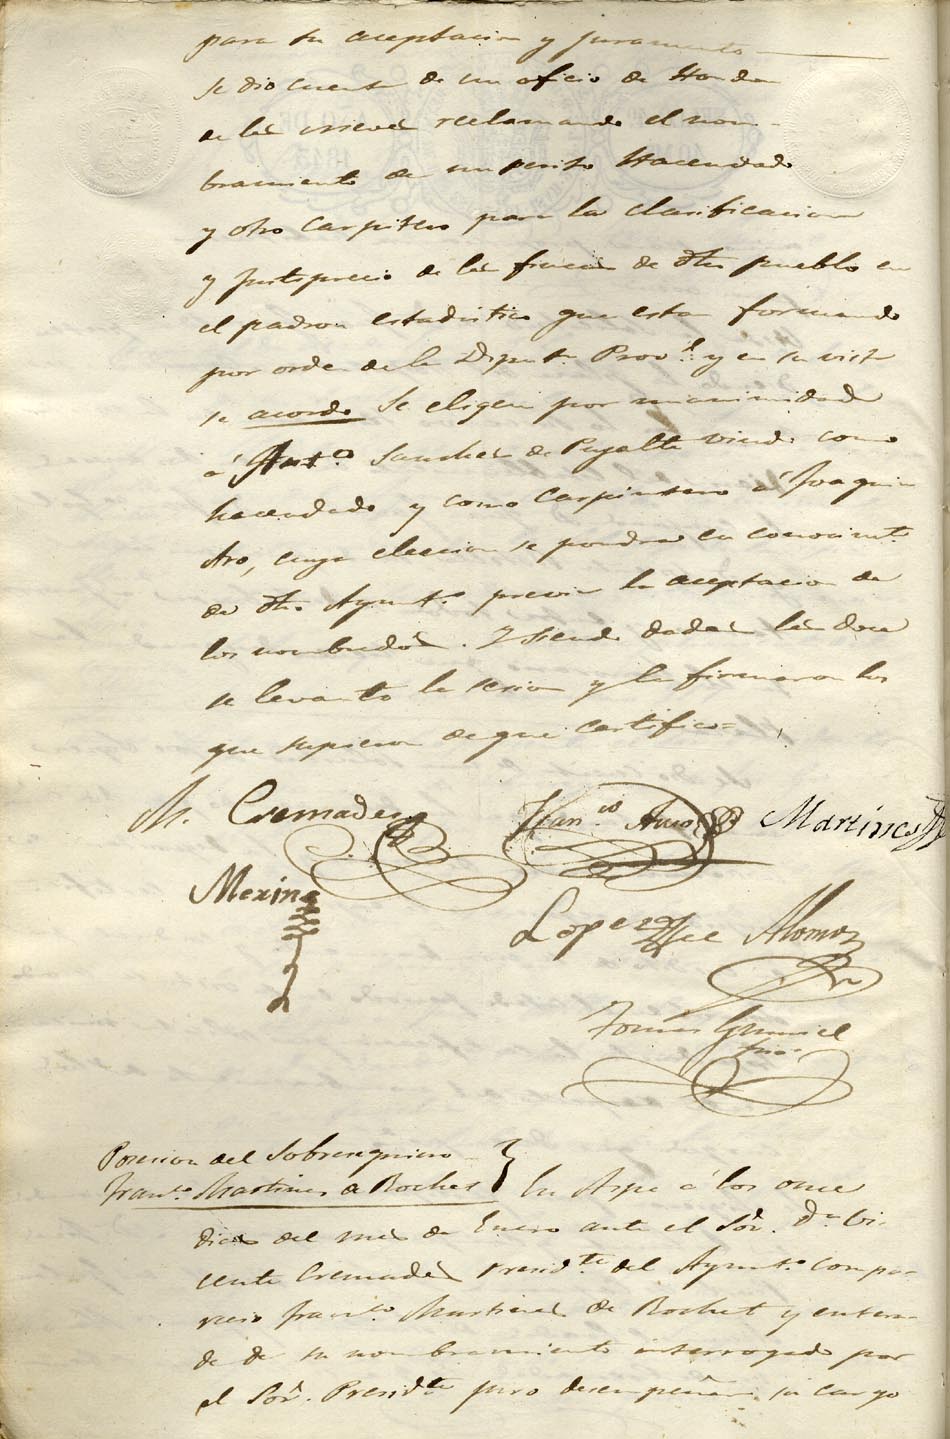 para su aceptacion y juramento
Se dio cuenta de un oficio de Hondon
de las nieves reclamando el nom-
bramiento de un perito Hacendado
y otro Carpitero para la clarificacion
y justiprecio de las fincas de dho pueblo en
el padron estadistico que esta formando
por orden de la Diputn. Provl. y en su vista
se acordo Se eligen por unanimidad
á Anto. Sanchez de Peralta viudo como
hacendado y como Carpintero á Joaquin
Aro, cuya eleccion se pondra en conocimto.
de dho. Ayunto. previa la aceptacion de
los nombrados. Y siendo dadas las doce
se levanto la sesion y la firmaron los
que supieron de que certifico=
Cremades Franco Martines
Merino
Lopez Alonso
Tomas
Posesion del Sobresequiero
Franco. Martines de Rochet } En Aspe á los once
dias del mes de Enero ante el Sor. Dn Vi-
cente Cremades Presidte del Ayunto. compa-
recio Franco. Martinez de Rochet y entera-
do de su nombramiento interrogado por
el Sor. Presidte juro desempeñar su cargo